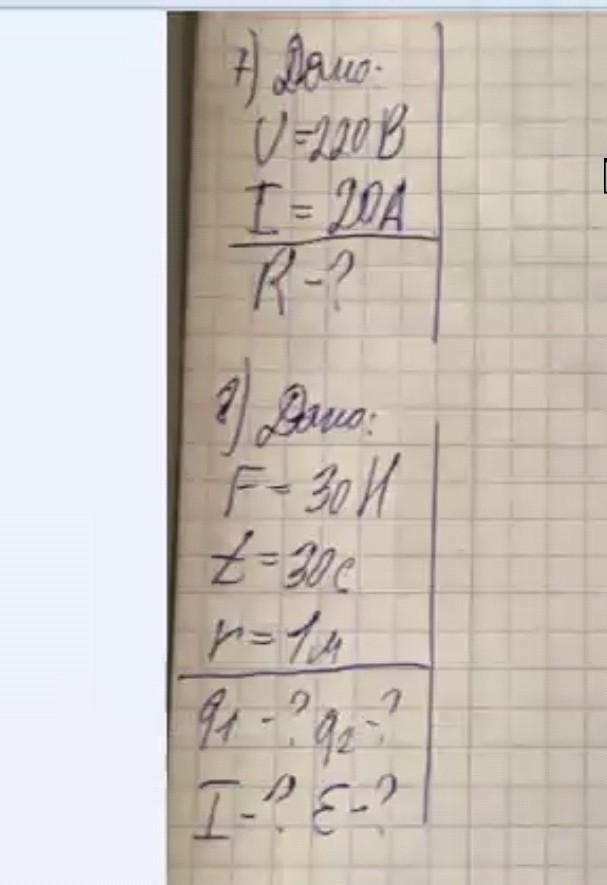 7) Дано:
U=220В
I = 20А
R-?
8) Дано:
F=30Н
t=30с
r=1м
q1-? q2-?
I-? ε-?